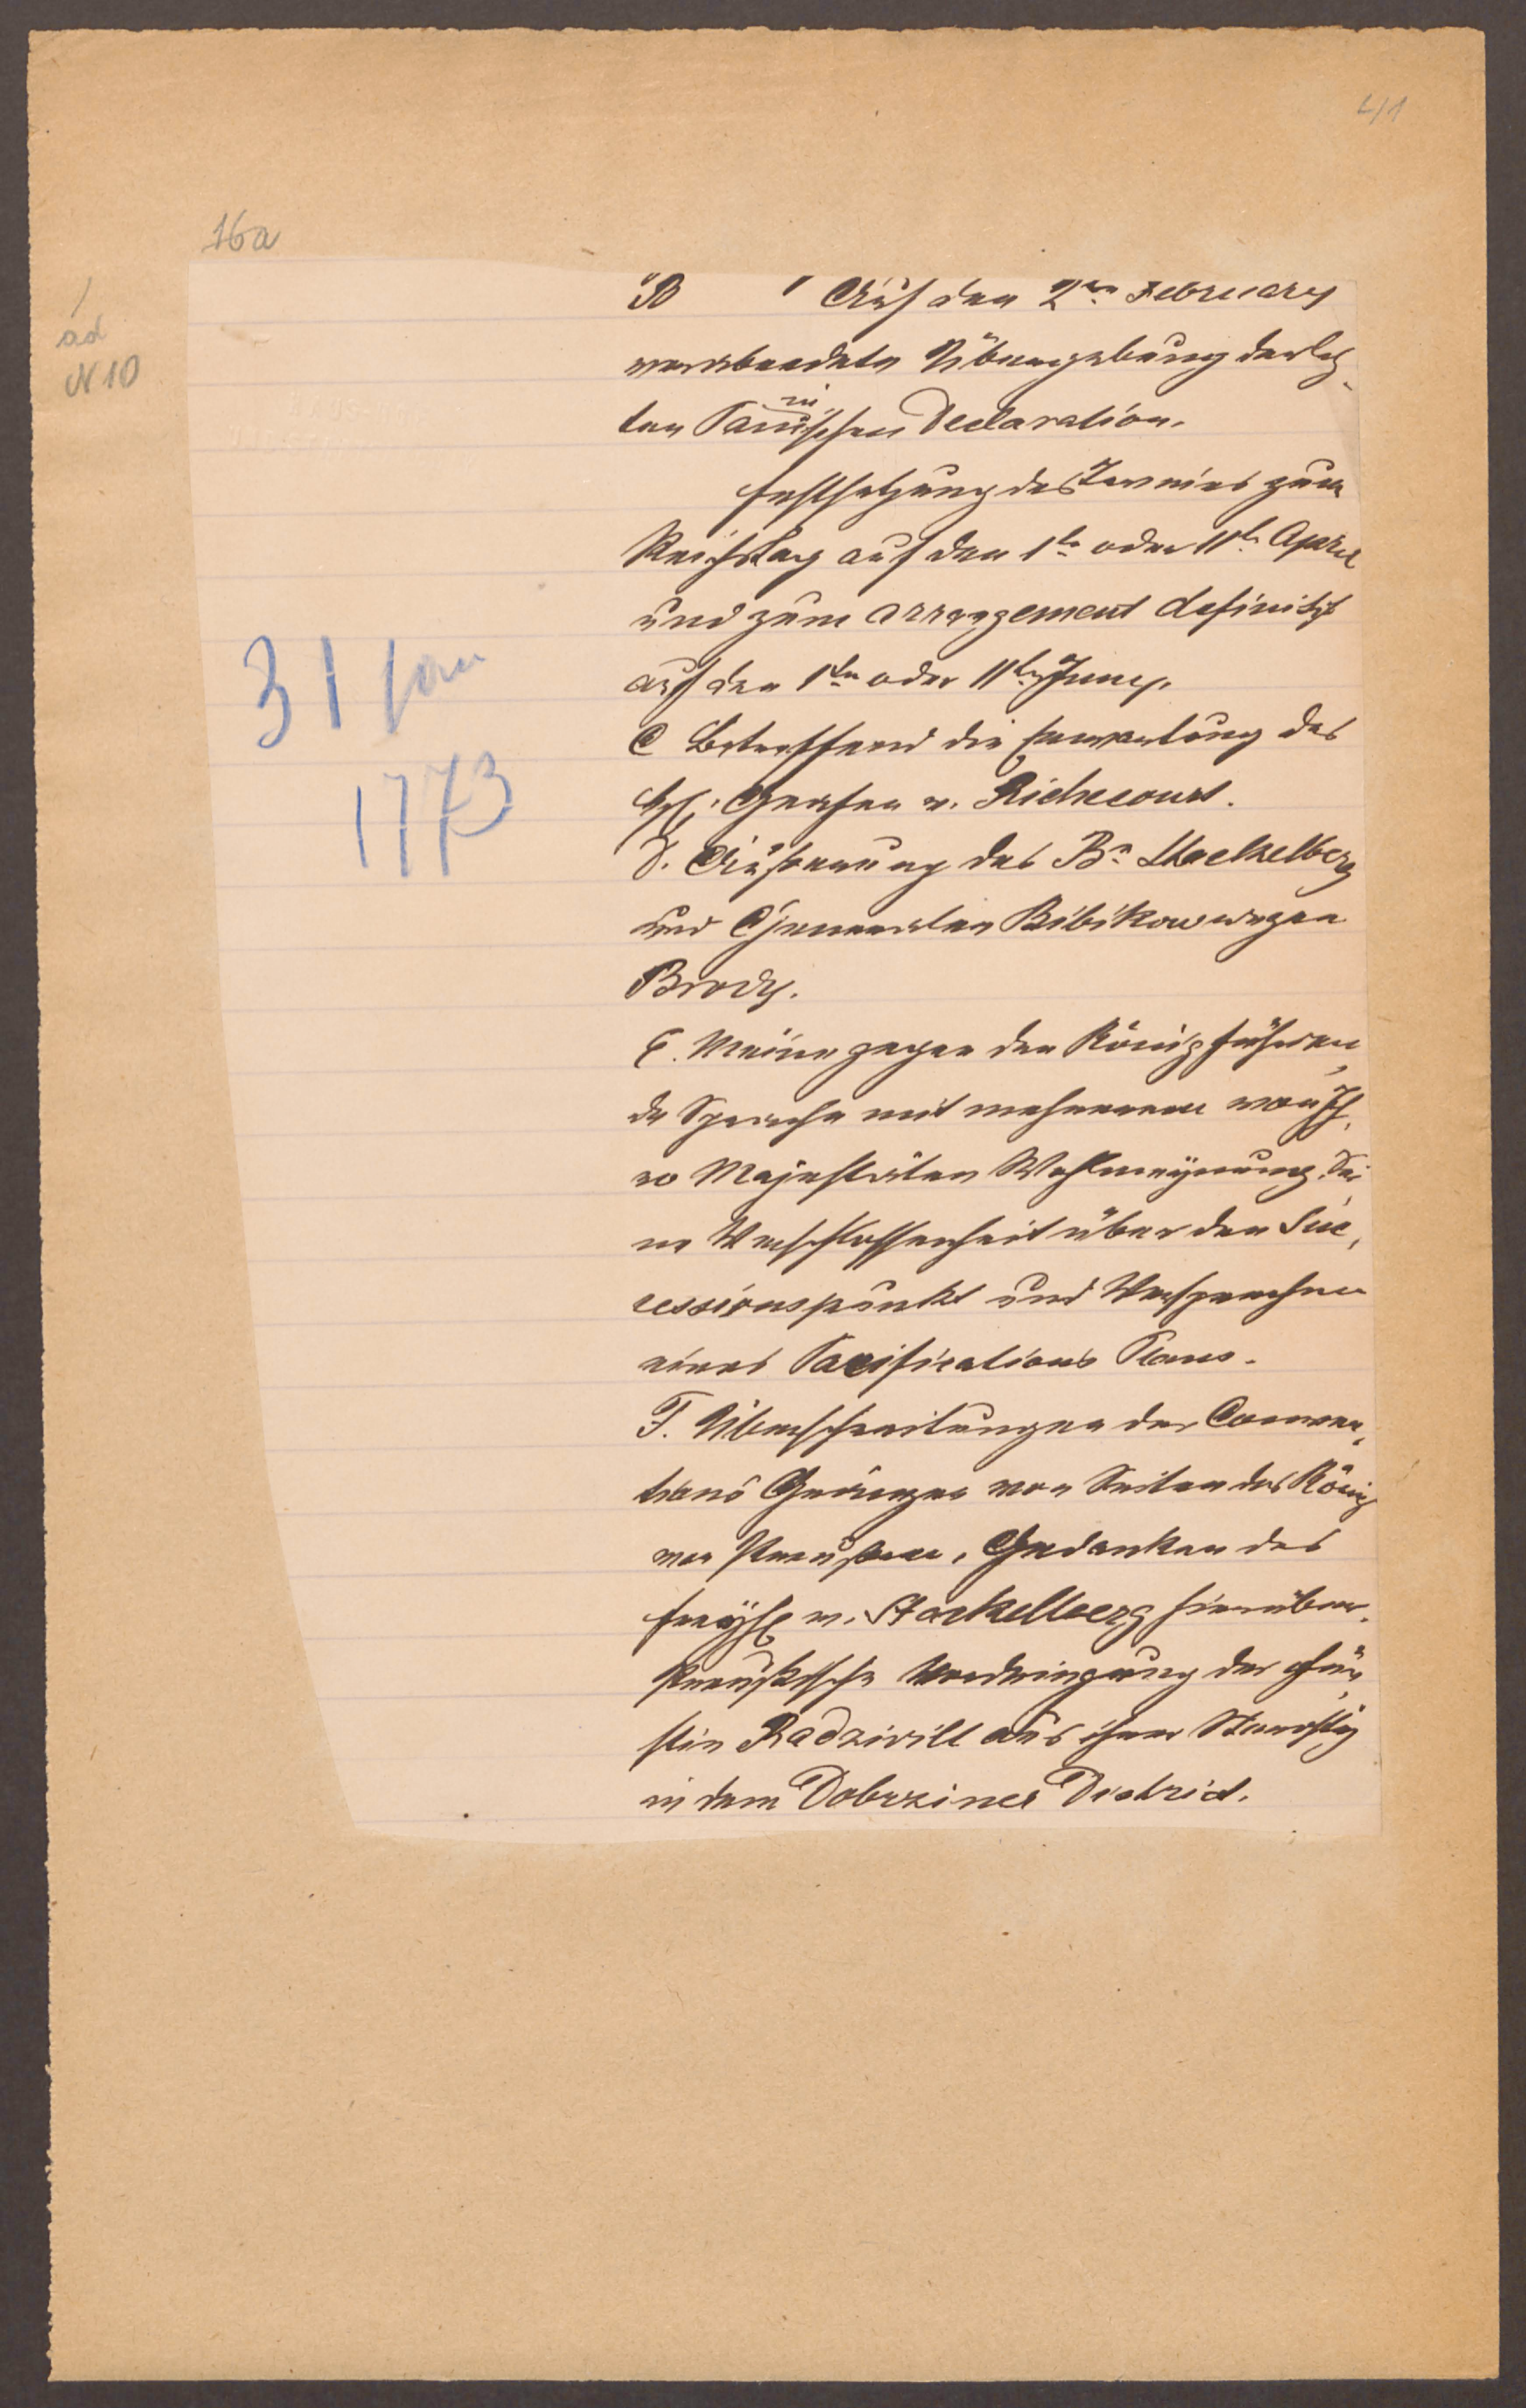 41
16a
ad
N 10
31 Jan
1773
B Auf den 2ten February
verabredete Übergebung der letz-
ten Panischen Declaration.
ni
Festsetzung des Termins zum
Reichstag auf den 1te oder 11te April
und zum arrangement definitif
auf den 1ten oder 11ten Juny.
C Betreffend die Erwartung des
H. Grafen v. Richecourt.
D. Äußerung des Bn Stackelberg
und Generalen Bibikow wegen
Brody.
E. Meine gegen den König führen,
de Sprache mit mehrerem von Ih,
ro Majestäten Wohlmeynung. Sei
ne Verschlossenheit über den Suc,
cessionspunkt und Versprechen
eines Pacifications Plans.
F. Überschreitungen der Conven,
tions Gränzen von Seiten des König
von Preußen, Gedanken des
Freyh v. Stackelberg hierüber.
Preußische Verdringung der Für
stin Radzivill aus ihrer Starosty
in dem Dobrziner District.